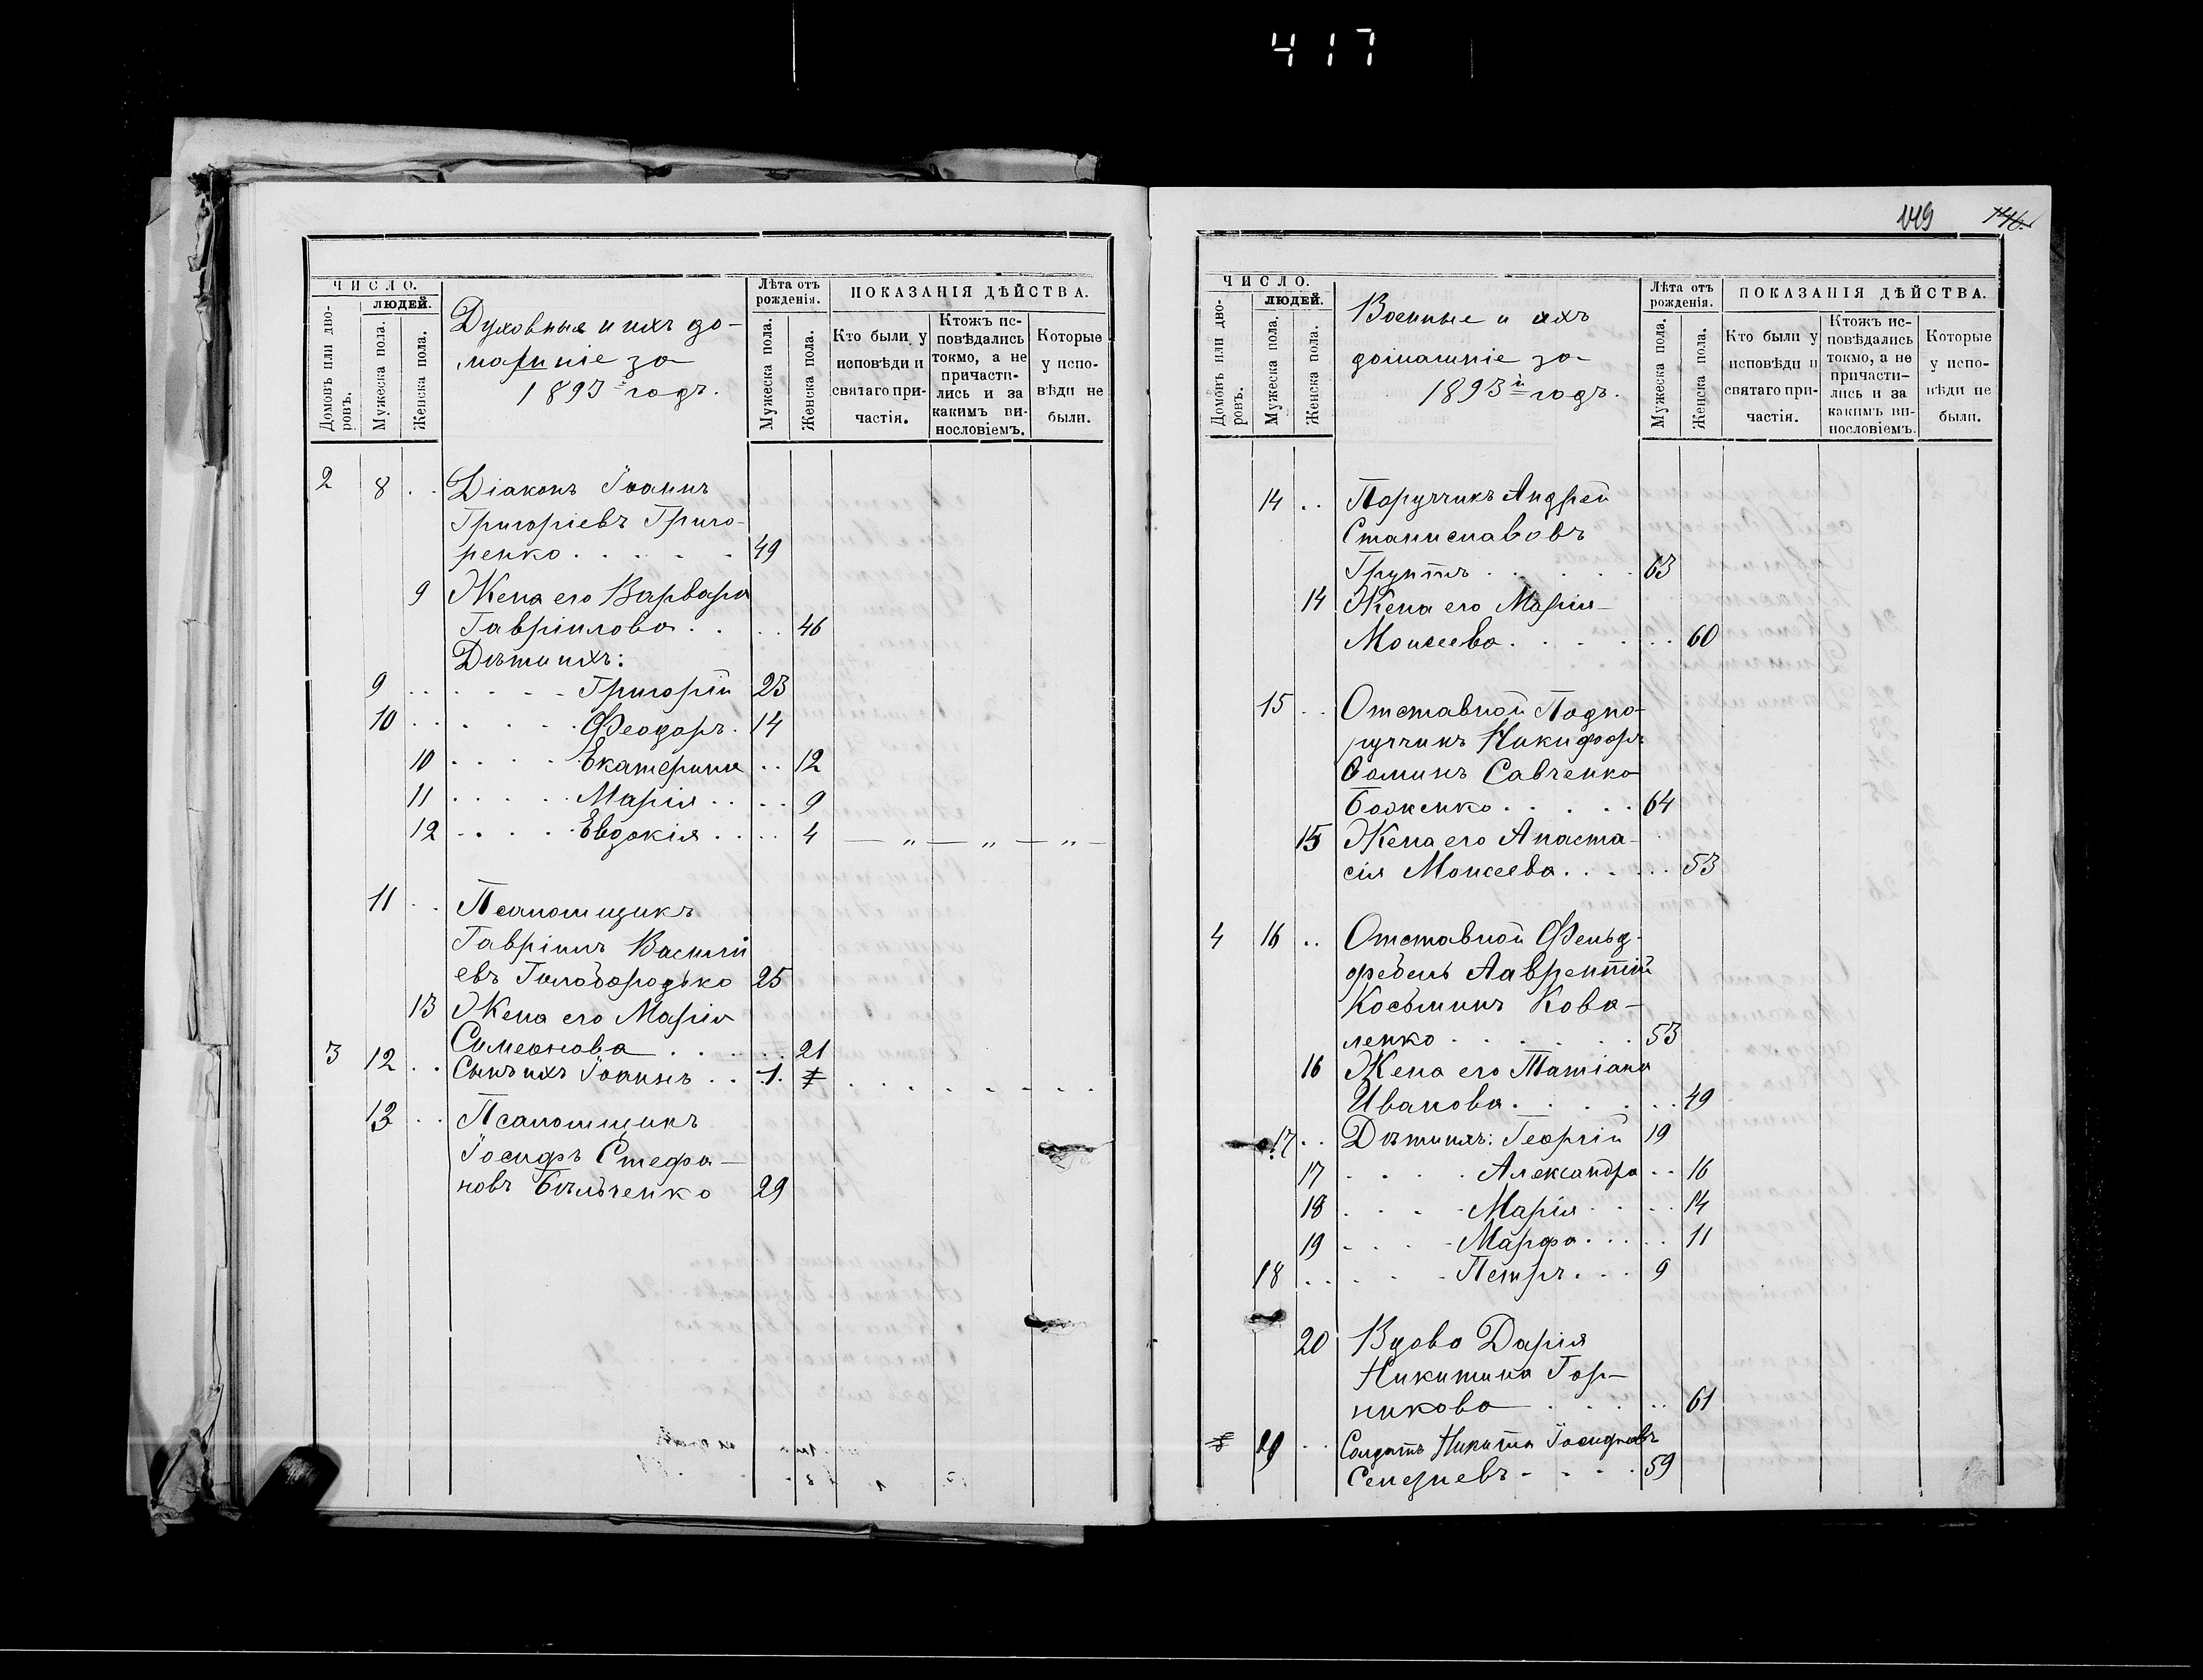 417
ЧИСЛО.
ЛЮДЕЙ.
Домовъ или дво-
ровъ.
Мужеска пола.
Женска пола.
Духовныя и ихъ до-
машніе за
1893 й годъ.
Лѣта отъ
рожденія.
Мужеска пола.
Женска пола.
ПОКАЗАНІЯ ДѢЙСТВА.
Кто были у
исповѣди и
святаго при-
частія.
Ктожъ ис-
повѣдались
токмо, а не
причасти-
лись и за
какимъ ви-
нословіемъ.
Которые
у испо-
вѣди не
были.
2 8 . . Діаконъ Іоаннъ
Григоріевъ Григо-
ренко . . . . . 49
9 Жена его Варвара
Гавріилова . . . . 46
Дѣти ихъ:
9 . . . . . . Григорій 23
10 . . . . . . Феодоръ . 14
10 . . . . Екатерина . . 12
11 . . . . . Марія . . . . 9
12 . . . . Евдокія . . . . 4 — „ — „ — „ —
11 . . Псаломщикъ
Гавріилъ Василі
евъ Голобородько 25
13 Жена его Марія
Симеонова . . . . . 21
3 12 . . Сынъ ихъ Іоаннъ . . 1 . . . . . . . .
13 . . Псаломщикъ
Іосифъ Стефа-
новъ Бѣльченко 29
149
146.
ЧИСЛО.
ЛЮДЕЙ.
Домовъ или дво-
ровъ.
Мужеска пола.
Женска пола.
Военные и ихъ
домашніе за
1893 й годъ.
Лѣта отъ
рожденія.
Мужеска пола.
Женска пола.
ПОКАЗАНІЯ ДѢЙСТВА.
Кто были у
исповѣди и
святаго при-
частія.
Ктожъ ис-
повѣдались
токмо, а не
причасти-
лись и за
какимъ ви-
нословіемъ.
Которые
у испо-
вѣди не
были.
14 . . Поручикъ Андрей
Станиславовъ
Грунтъ . . . . . 63
14 Жена его Марія
Моисеева . . . . . . 60
15 . . Отставной Подпо-
ручикъ Никифоръ
Ѳоминъ Савченко
Боженко . . . . . 64
15 Жена его Анаста-
сія Моисеева . . . . . 53
4 16 . . Отставной Фельд-
фебель Лаврентій
Косьминъ Кова-
ленко . . . . . . 53
16 Жена его Татіана
Иванова . . . . . . 49
17 . . Дѣти ихъ: Георгій 19
17 . . . . Александра . . 16
18 . . . . Марія . . . . 14
19 . . . . Марфа . . . . . 11
18 . . . . . Петръ . . . 9
20 Вдова Дарія
Никитина Гор-
никова . . . . . . 61
. . Солдатъ Никита Іосифовъ
. . . . 59